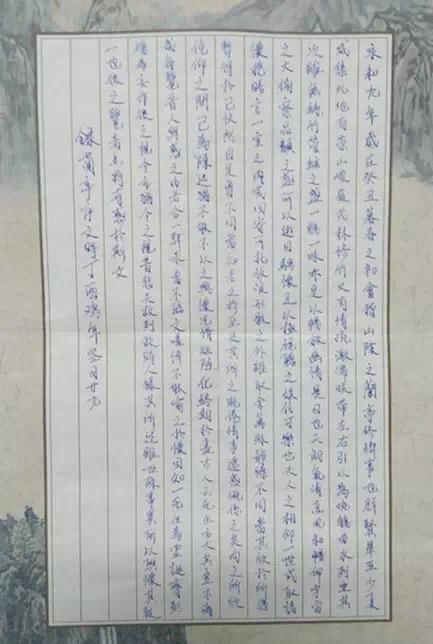 永和九年歲在癸丑暮春之初會稽山陰之蘭亭修禊事也群賢畢至少長
咸集此地有崇山峻嶺茂林修竹又有清流激湍映帶左右引以為流觴曲水列坐其
次雖無絲竹管絃之盛一觴一詠亦足以暢敘幽情是日也天朗氣清惠風和暢仰觀宇宙
之大俯察品類之盛所以遊目騁懷足以極視聽之娛信可樂也夫人之相仰一世或取諸
懷抱晤言一室之內或因寄所托放浪形骸之外雖取舍萬殊靜躁不同當其欣於所遇
暫得於己快然自足曾不知老之將至及其所之既倦情事遷感慨係之矣向之所欣
俛仰之間已為陳迹猶不能不以之興懷況修短隨化終期於盡古人云死生亦大矣豈不痛
哉每覽昔人興感之由若合一契未嘗不臨文嗟悼不能喻之於懷固知一死生為虛誕齊彭
殤為妄作後之視今亦猶今之視昔悲夫故列敘時人錄其所述雖世殊事異所以興懷其致
一也後之覽者亦將有感於斯文
錄蘭亭序之時丁酉年月廿九